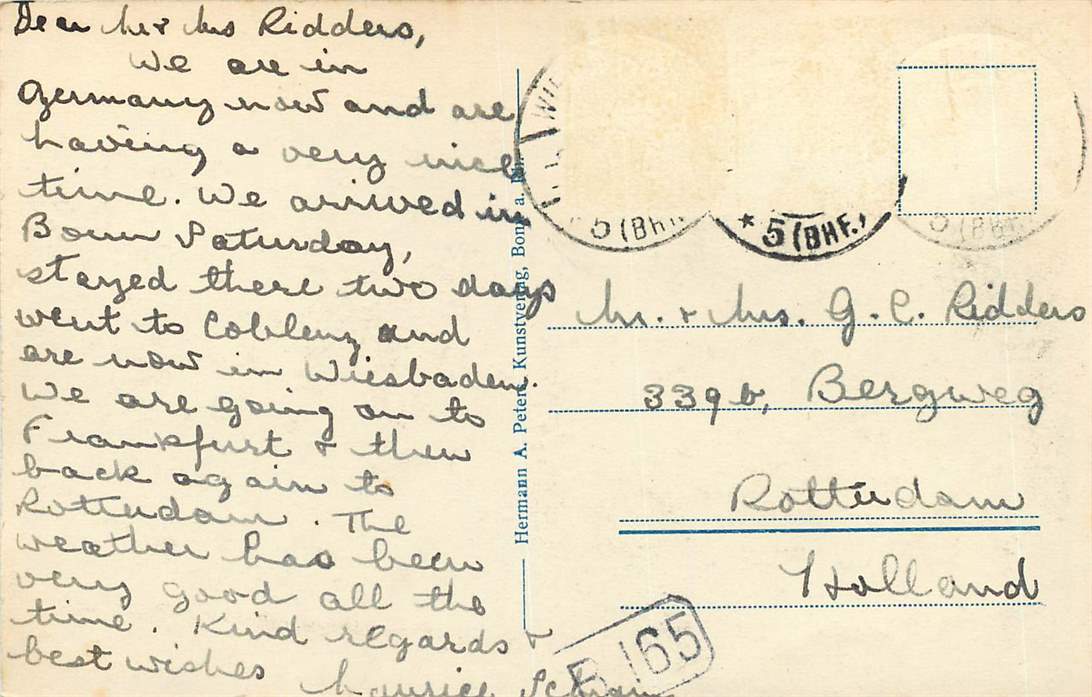 Dear Mr & Mrs Ridders,
We are in
Germany now and are
having a very nice
time. We arrived in
Bonn Saturday,
stayed there two days
went to Coblenz and
are now in Wiesbaden.
We are going on to
Frankfurt & then
back again to
Rotterdam. The
weather has been
very good all the
time. Kind regards &
best wishes
Maurice
Hermann A. Peters, Kunstverlag, Bonn a.
* 5 (BHF.)
* 5 (BHF.)
Mr. & Mrs. G. C. Ridders
339b, Bergweg
Rotterdam
Holland
B 165